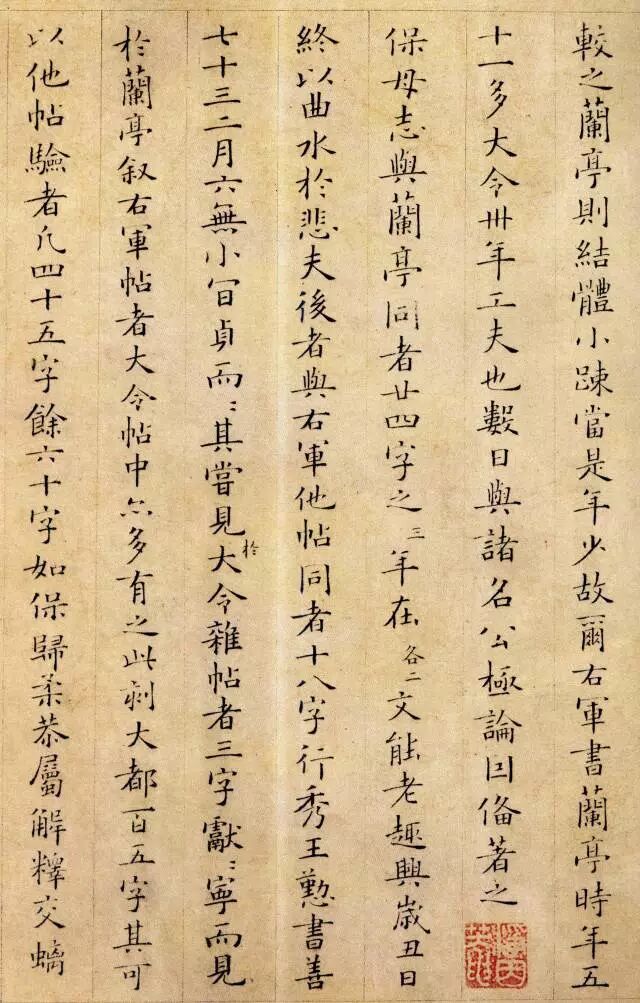 較之蘭亭則結體小踈當是年少故爾右軍書蘭亭時年五
十一多大令卅年工夫也數日與諸名公極論因俻著之
保母志與蘭亭同者廿四字之三年在各二文能老趣興歲丑日
終以曲水於悲夫後者與右軍他帖同者十八字行秀王懃書善
七十三二月六無小官貞而〻其嘗見於大令雜帖者三字獻〻寧而見
於蘭亭叙右軍帖者大令帖中亦多有之此刻大都百五字其可
以他帖驗者凡四十五字餘六十字如保歸柔恭屬解釋交螭